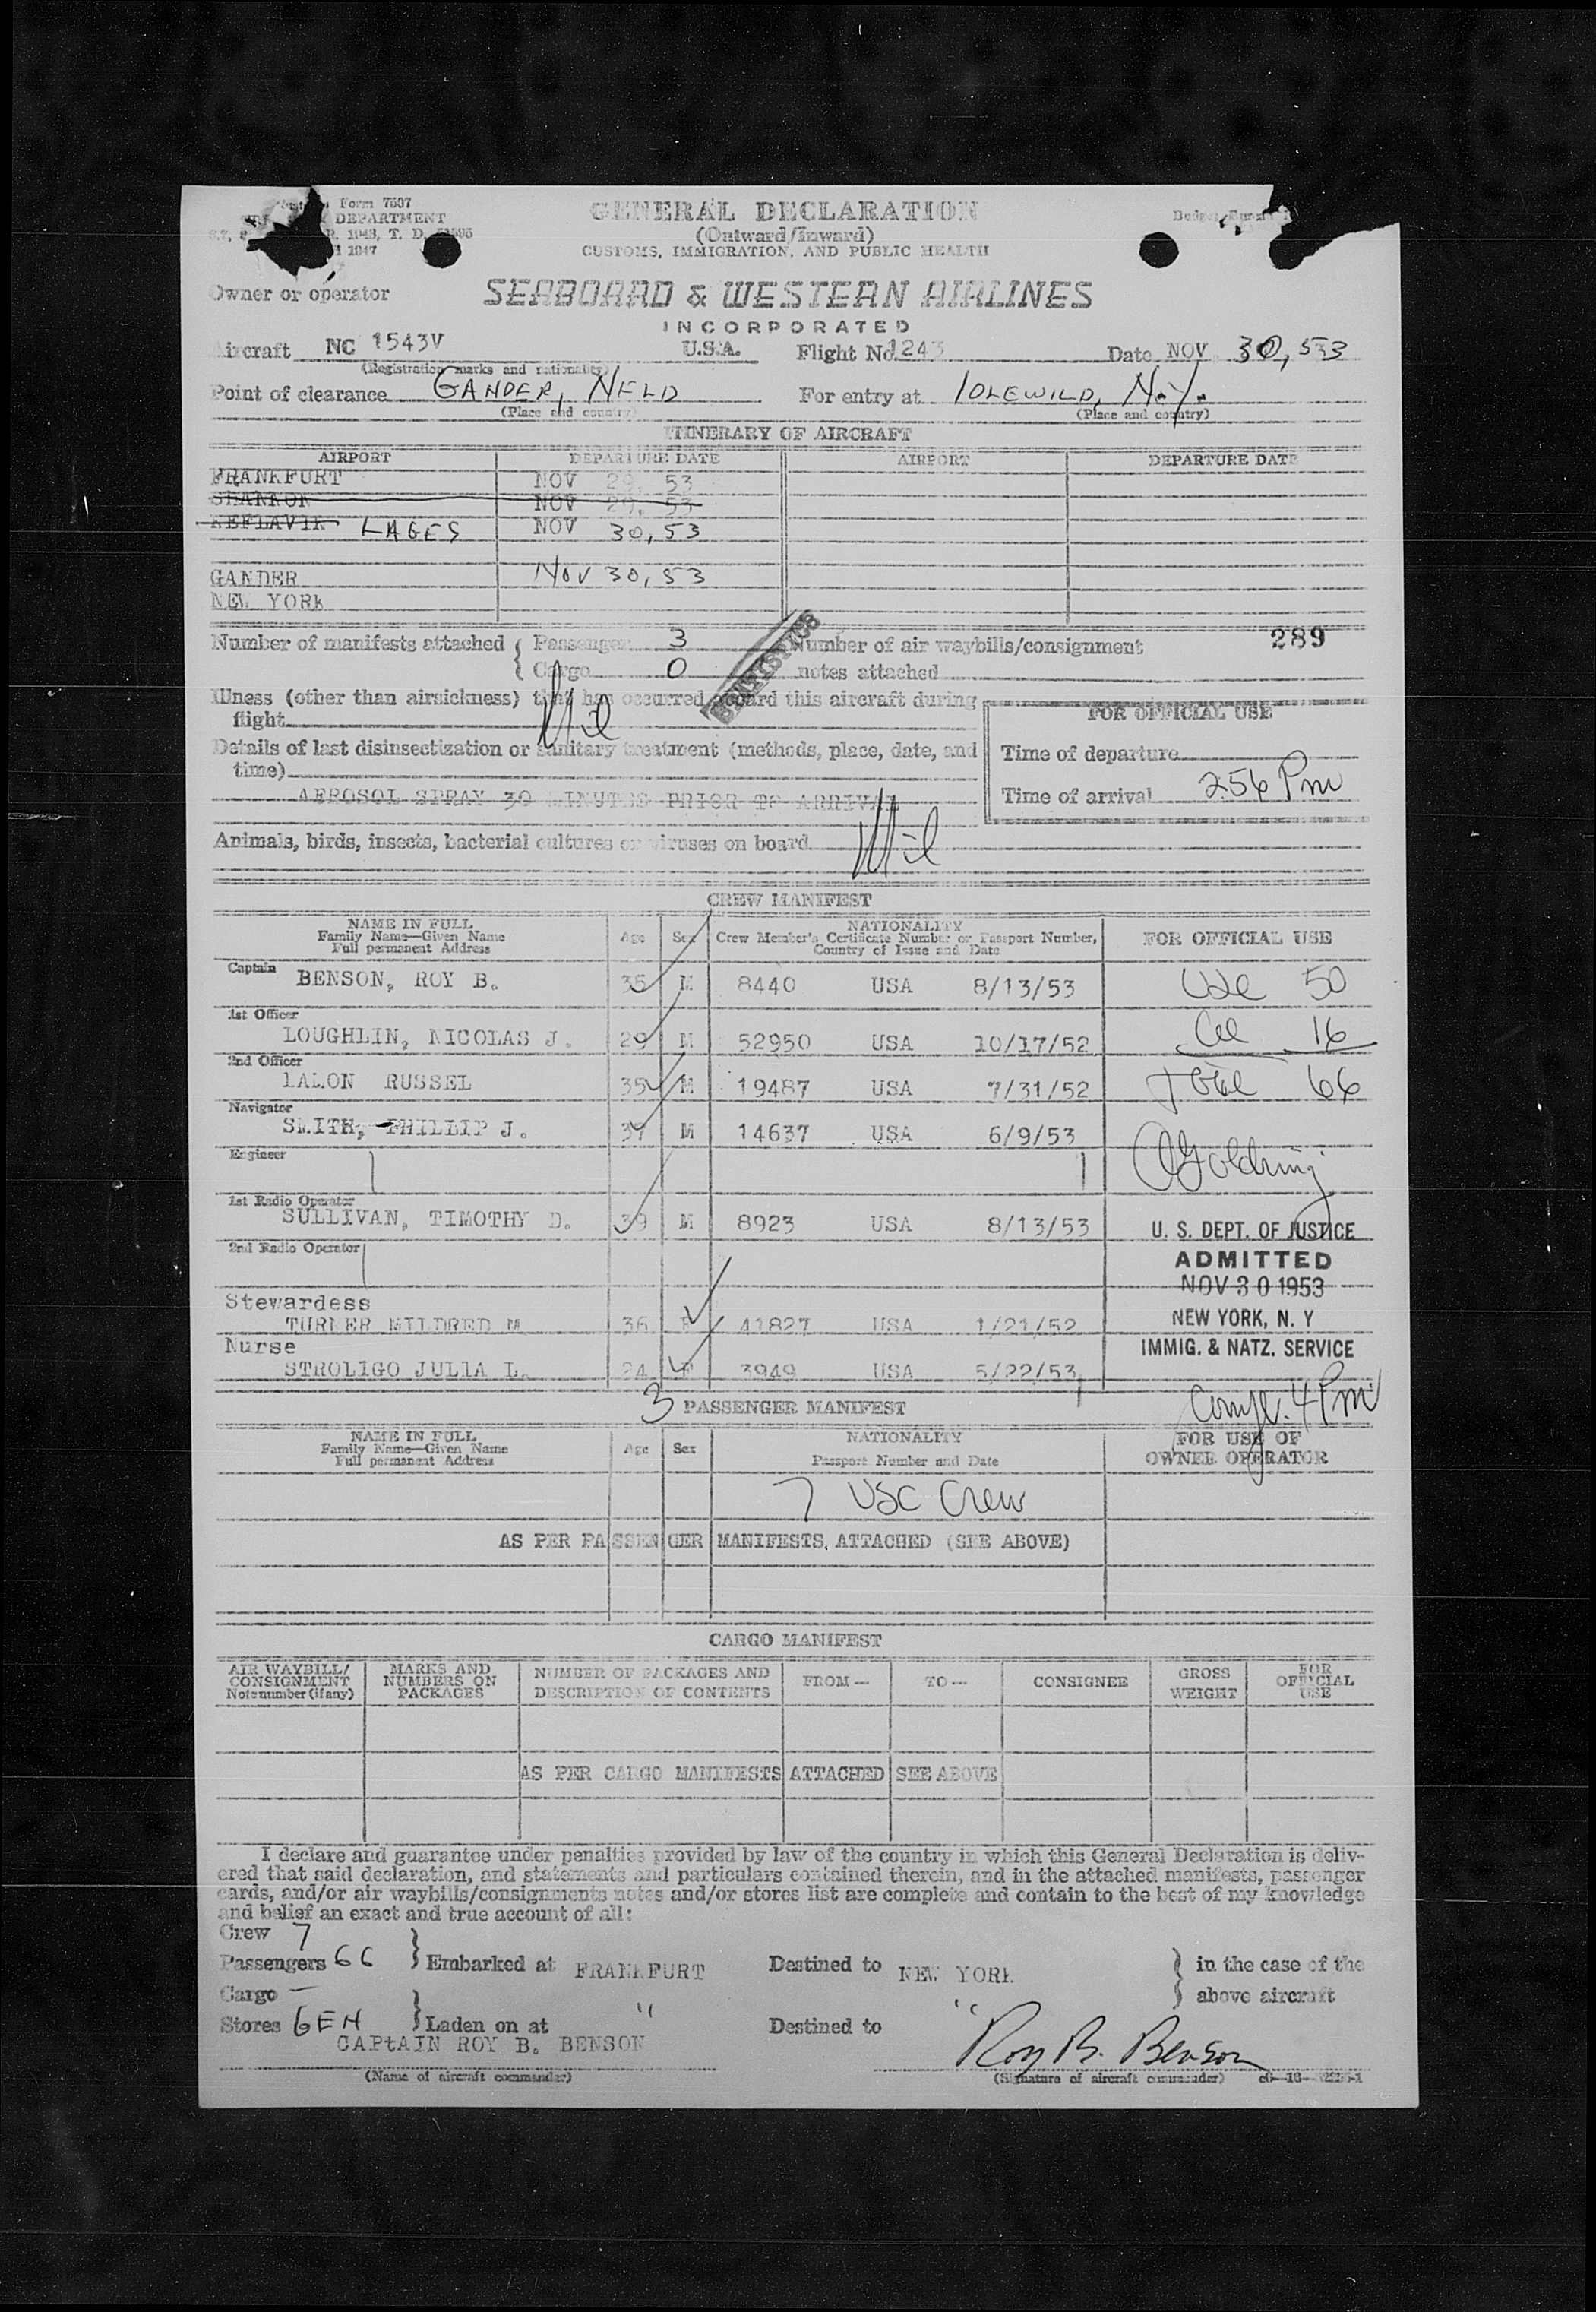 Form 7507
DEPARTMENT
1948, T. D.
1947
Budget
GENERAL DECLARATION
(Outward/Inward)
CUSTOMS, IMMIGRATION, AND PUBLIC HEALTH
Owner or operator SEABOARD & WESTERN AIRLINES
INCORPORATED
Aircraft NC 1543V U.S.A. Flight No. 1243 Date NOV 30, 53
(Registration marks and nationality)
Point of clearance GANDER, NFLD For entry at IDLEWILD, N.Y.
(Place and country) (Place and country)
ITINERARY OF AIRCRAFT
AIRPORT DEPARTURE DATE AIRPORT DEPARTURE DATE
FRANKFURT NOV 29, 53
SHANNON NOV 29, 53
KEFLAVIK LAGES NOV 30, 53
GANDER NOV 30, 53
NEW YORK
Number of manifests attached { Passenger 3 Number of air waybills/consignment 289
Cargo 0 notes attached
STATISTICS
Illness (other than airsickness) that has occurred aboard this aircraft during
flight Nil
FOR OFFICIAL USE
Details of last disinsectization or sanitary treatment (methods, place, date, and
time)
Time of departure
AEROSOL SPRAY 30 MINUTES PRIOR TO ARRIVAL
Time of arrival 256 Pm
Animals, birds, insects, bacterial cultures or viruses on board Nil
CREW MANIFEST
NAME IN FULL Age Sex NATIONALITY FOR OFFICIAL USE
Family Name—Given Name Crew Member's Certificate Number or Passport Number,
Full permanent Address Country of Issue and Date
Captain BENSON, ROY B. 35 M 8440 USA 8/13/53 50
1st Officer
LOUGHLIN, NICOLAS J. 29 M 52950 USA 10/17/52 16
2nd Officer
LALON RUSSEL 35 M 19487 USA 7/31/52 Total 66
Navigator
SMITH, PHILLIP J. 37 M 14637 USA 6/9/53
Engineer
1st Radio Operator
SULLIVAN, TIMOTHY D. 39 M 8923 USA 8/13/53
2nd Radio Operator
U. S. DEPT. OF JUSTICE
ADMITTED
NOV 30 1953
NEW YORK, N. Y
IMMIG. & NATZ. SERVICE
Stewardess
TURNER MILDRED M 36 F 41827 USA 1/21/52
Nurse
STROLIGO JULIA L. 24 F 3949 USA 5/22/53
3 PASSENGER MANIFEST Compl. 4 Pm
NAME IN FULL Age Sex NATIONALITY FOR USE OF
Family Name—Given Name Passport Number and Date OWNER OPERATOR
Full permanent Address
7 USC Crew
AS PER PASSENGER MANIFESTS, ATTACHED (SEE ABOVE)
CARGO MANIFEST
AIR WAYBILL/ CONSIGNMENT Note number (if any) MARKS AND NUMBERS ON PACKAGES NUMBER OF PACKAGES AND DESCRIPTION OF CONTENTS FROM— TO— CONSIGNEE GROSS WEIGHT FOR OFFICIAL USE
AS PER CARGO MANIFESTS ATTACHED SEE ABOVE
I declare and guarantee under penalties provided by law of the country in which this General Declaration is deliv-
ered that said declaration, and statements and particulars contained therein, and in the attached manifests, passenger
cards, and/or air waybills/consignments notes and/or stores list are complete and contain to the best of my knowledge
and belief an exact and true account of all:
Crew 7
Passengers 66 } Embarked at FRANKFURT Destined to NEW YORK } in the case of the
Cargo — above aircraft
Stores GEN } Laden on at " Destined to "
CAPtAIN ROY B. BENSON Roy B. Benson
(Name of aircraft commander) (Signature of aircraft commander)